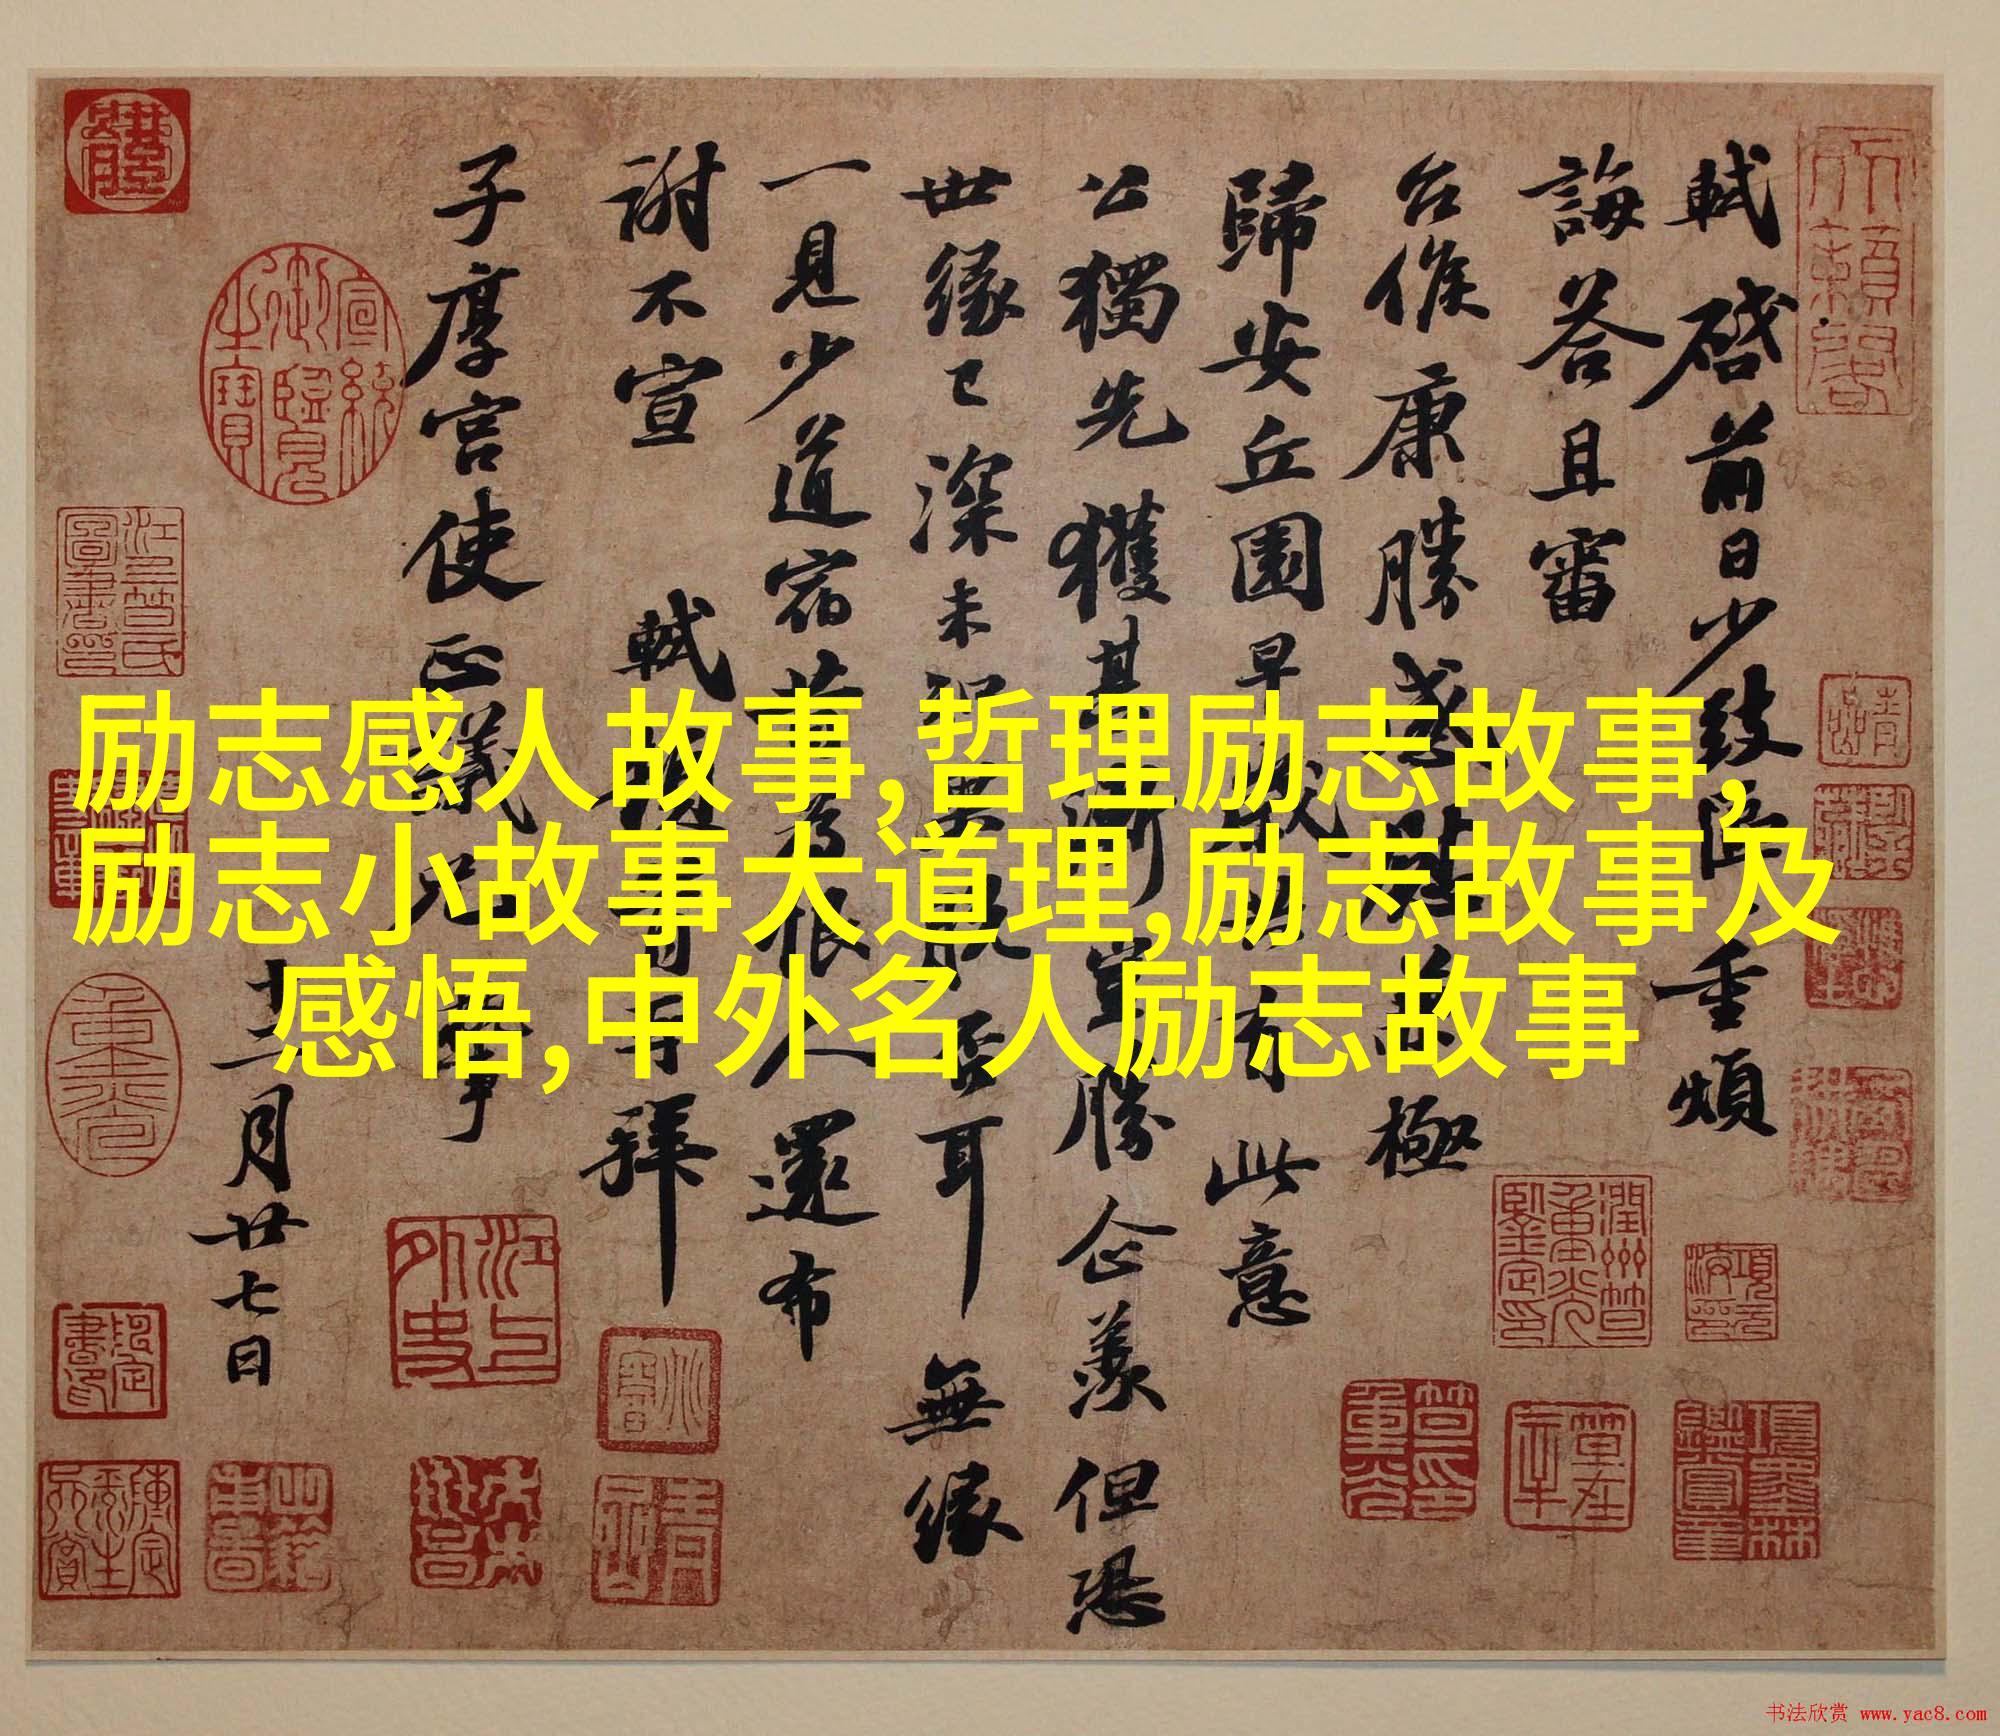 軾啓前日少致區區重煩
誨荅且審
台候康勝感慰兼極
歸安丘園早歲共有此意
公獨先獲其漸豈勝企羨但恐
世緣已深未知果脫否耳無緣
一見少道宿昔為恨人還布
謝不宣 軾頓首再拜
子厚宮使正議兄執事
十二月廿七日
励志感人故事,哲理励志故事,
励志小故事大道理,励志故事及
感悟,中外名人励志故事
宣統御覽之寶
天籟閣
江上外史
书法欣赏 www.yac8.com